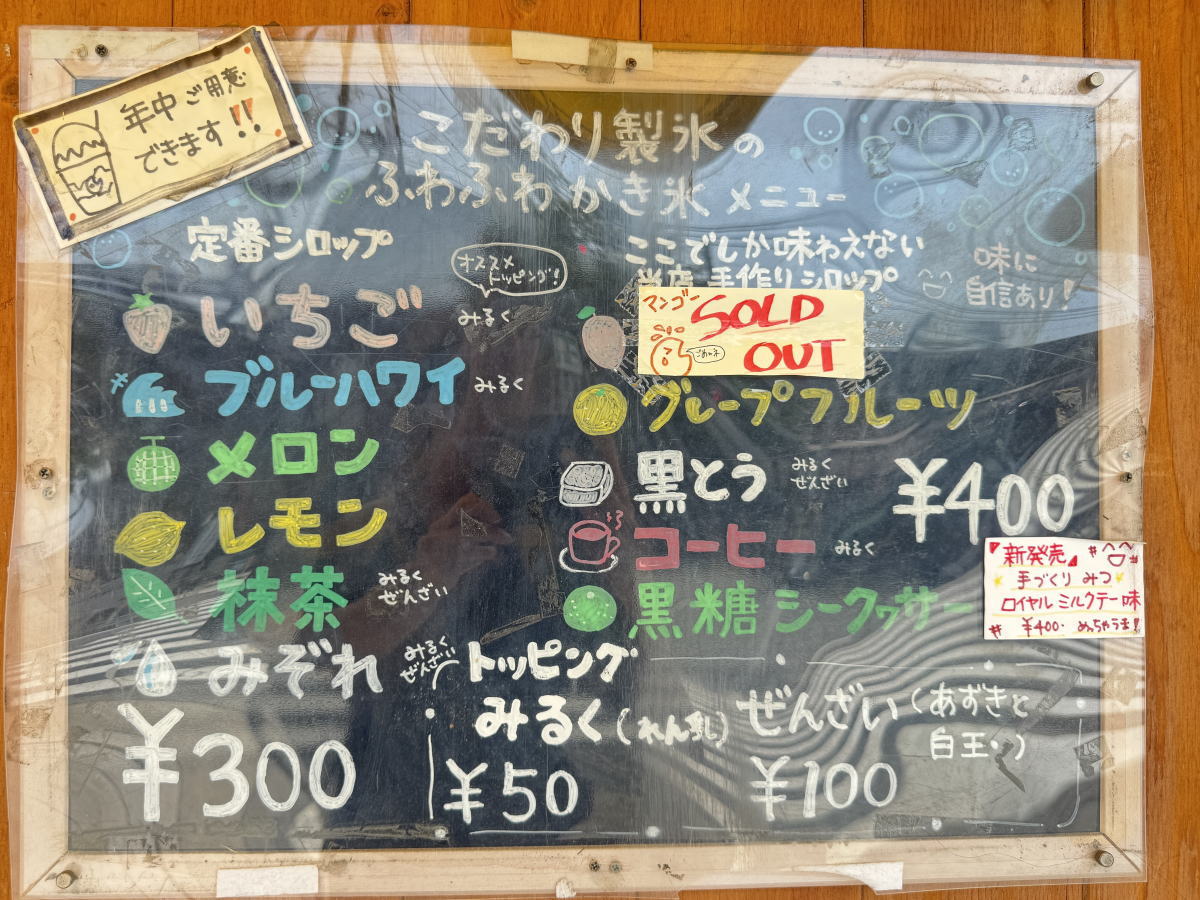 年中ご用意
できます!!
こだわり製氷の
ふわふわかき氷 メニュー
定番シロップ
オススメ
トッピング!
いちご
みるく
ブルーハワイ
みるく
メロン
レモン
抹茶
みるく
ぜんざい
みぞれ
みるく
ぜんざい
¥300
ここでしか味わえない
当店 手作りシロップ
味に
自信あり!
マンゴー
SOLD
OUT
グレープフルーツ
黒とう
みるく
ぜんざい
コーヒー
みるく
黒糖シークヮサー
¥400
新発売
手づくり みつ
ロイヤルミルクテー味
¥400. めっちゃうま!
トッピング
みるく(れん乳)
¥50
ぜんざい(あずきと
白玉・・)
¥100